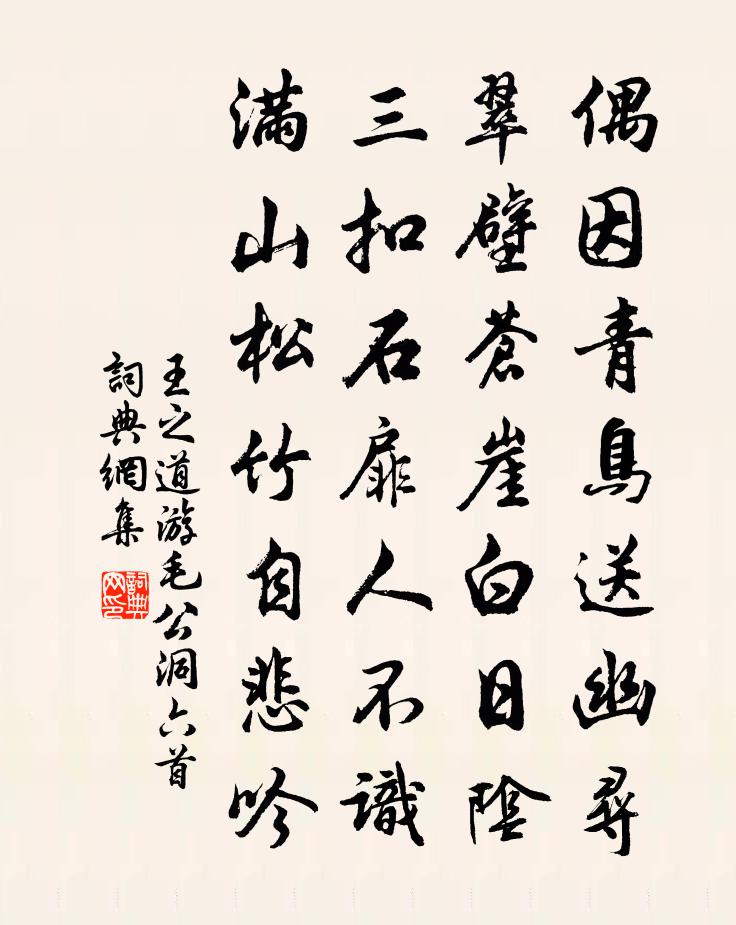 偶因青鳥送幽尋
翠壁蒼崖白日陰
三扣石扉人不識
滿山松竹自悲吟
王之道游毛公洞六首
詞典網集
詞典網印